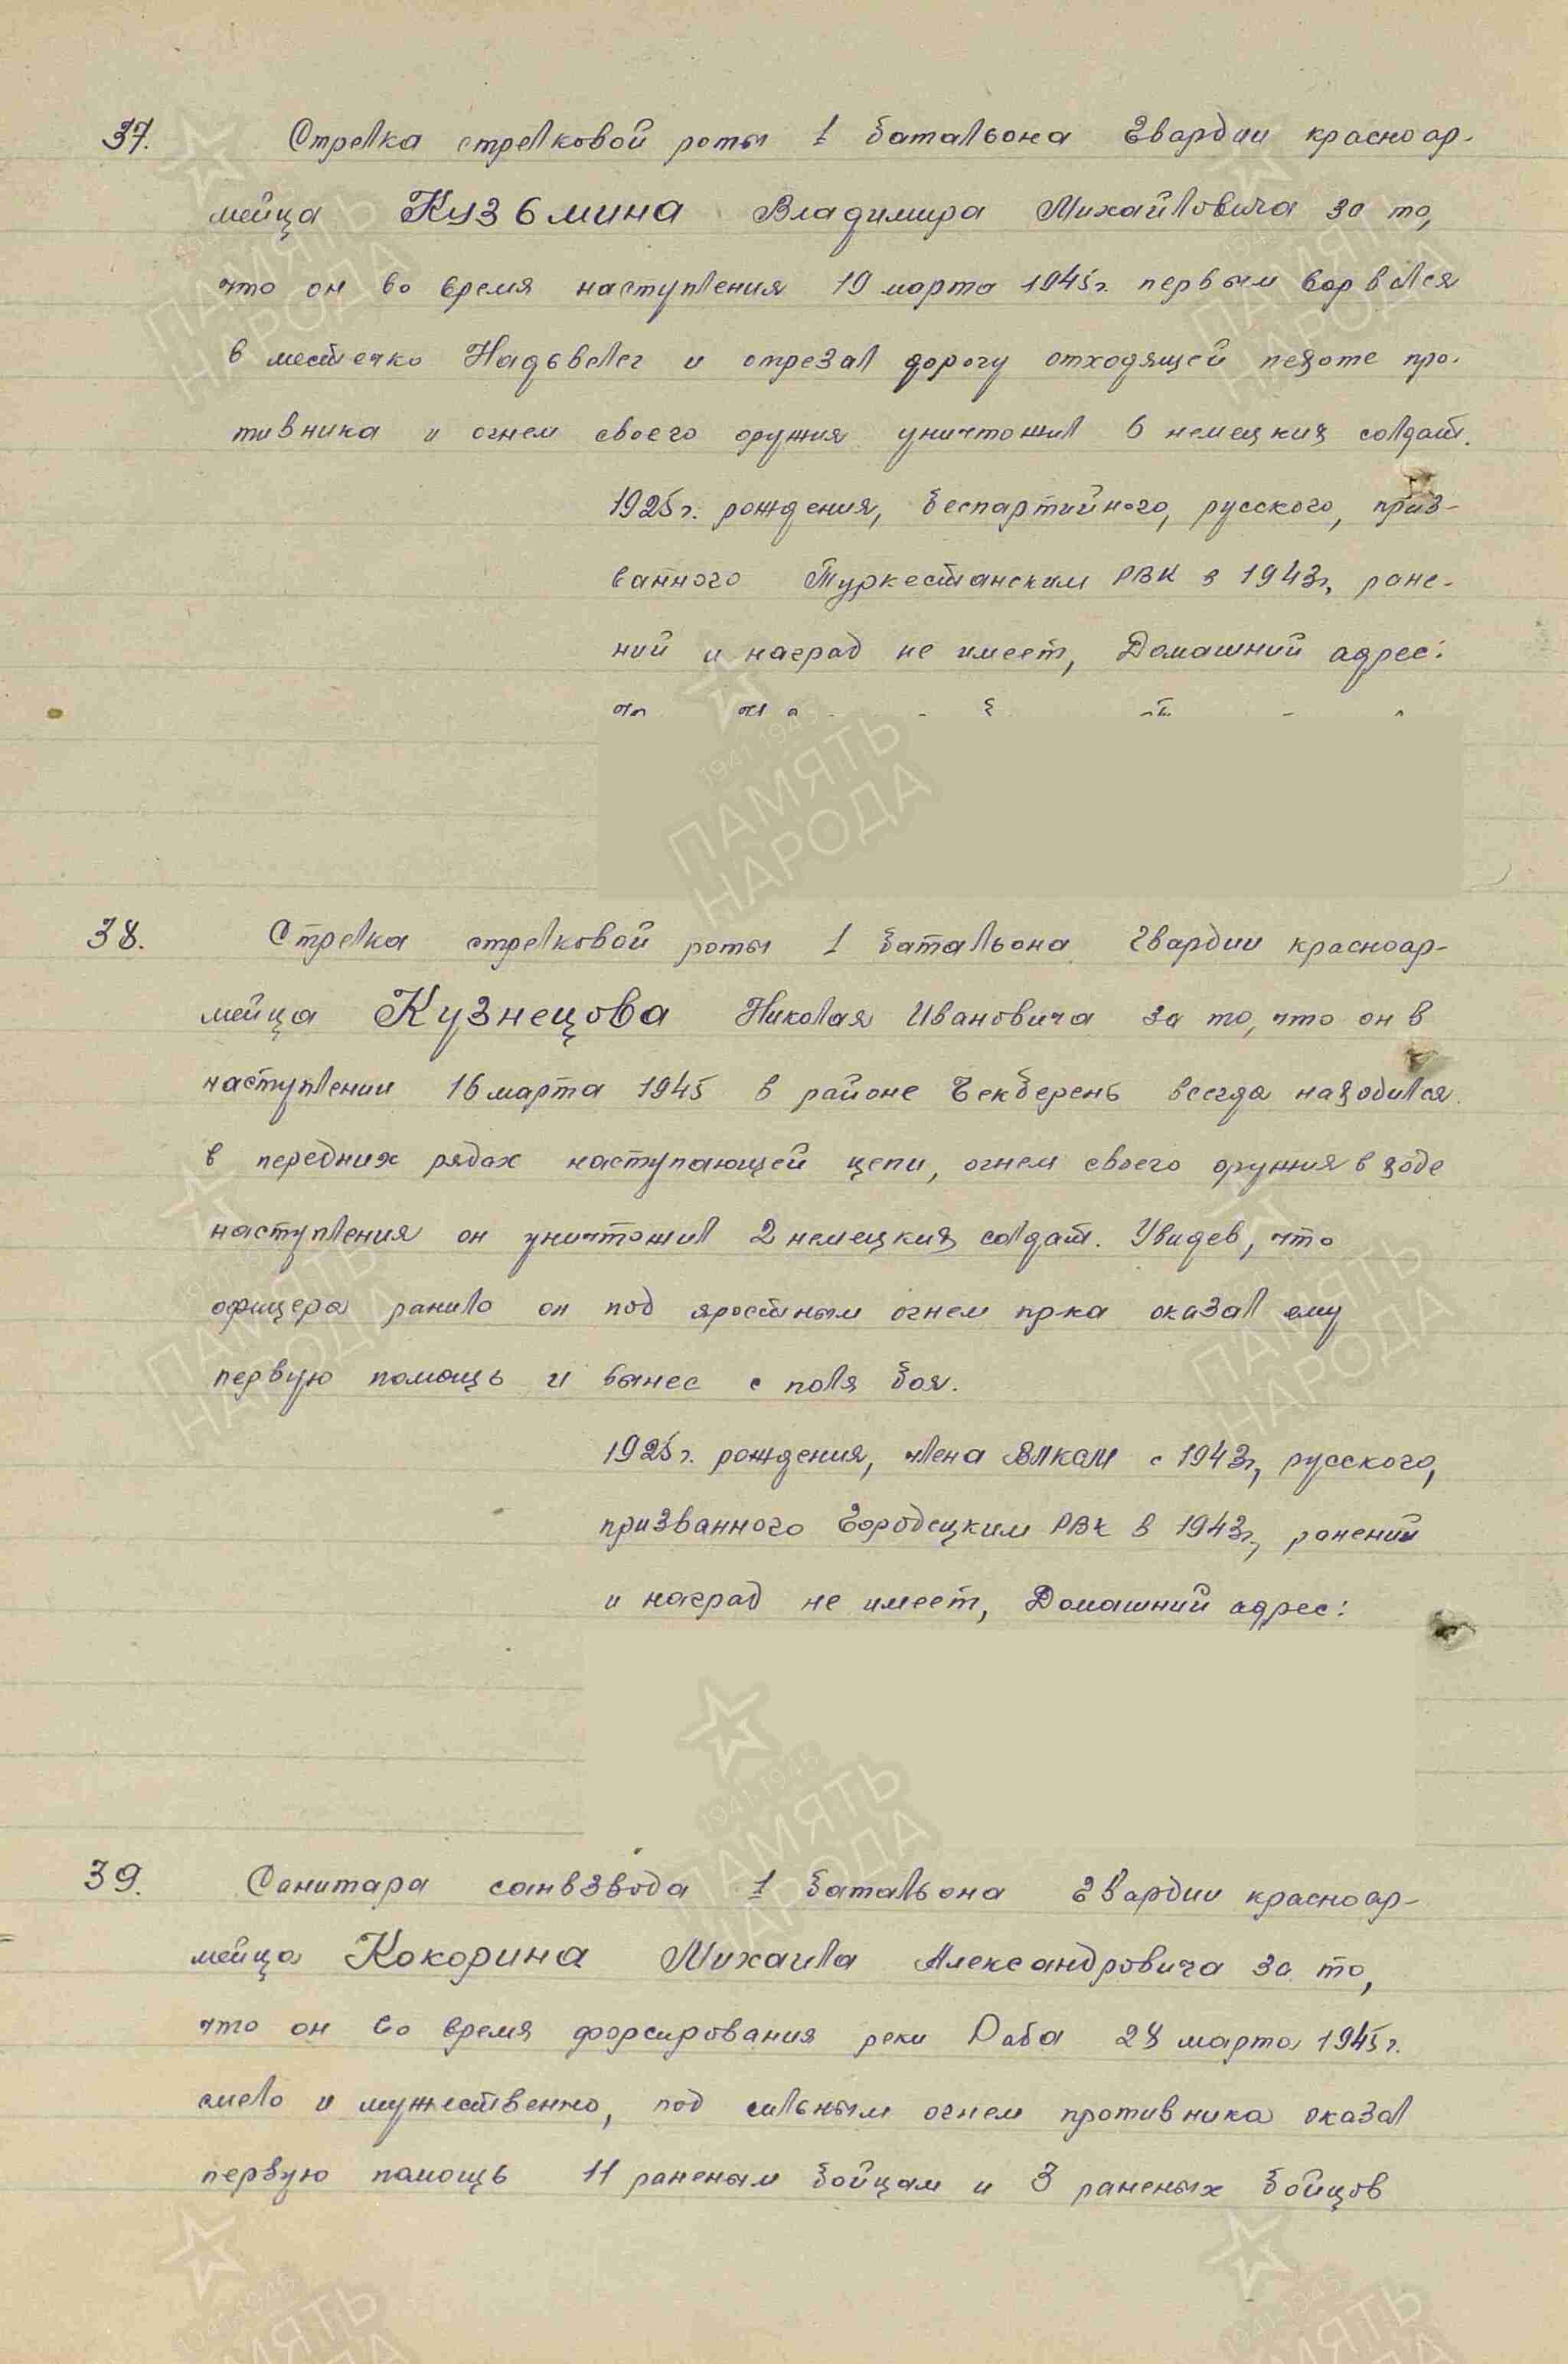 37. Стрелка стрелковой роты 1 батальона Гвардии красноар-
мейца Кузьмина Владимира Михайловича за то,
что он во время наступления 19 марта 1945г. первым ворвался
в местечко Надьвелег и отрезал дорогу отходящей пехоте про-
тивника и огнем своего оружия уничтожил 6 немецких солдат.
1925г. рождения, беспартийного, русского, приз-
ванного Туркестанским РВК в 1943г, ране-
ний и наград не имеет, Домашний адрес:
38. Стрелка стрелковой роты 1 батальона Гвардии красноар-
мейца Кузнецова Николая Ивановича за то, что он в
наступлении 16 марта 1945 в районе Бекберень всегда находился
в передних рядах наступающей цепи, огнем своего оружия в ходе
наступления он уничтожил 2 немецких солдат. Увидев, что
офицера ранило он под яростным огнем пр-ка оказал ему
первую помощь и вынес с поля боя.
1925г. рождения, члена ВЛКСМ с 1943г, русского,
призванного Городецким РВК в 1943г, ранений
и наград не имеет, Домашний адрес:
39. Санитара санвзвода 1 батальона Гвардии красноар-
мейца Кокорина Михаила Александровича за то,
что он во время форсирования реки Раба 28 марта 1945г.
смело и мужественно, под сильным огнем противника оказал
первую помощь 11 раненым бойцам и 3 раненых бойцов
1941-1945
ПАМЯТЬ
НАРОДА